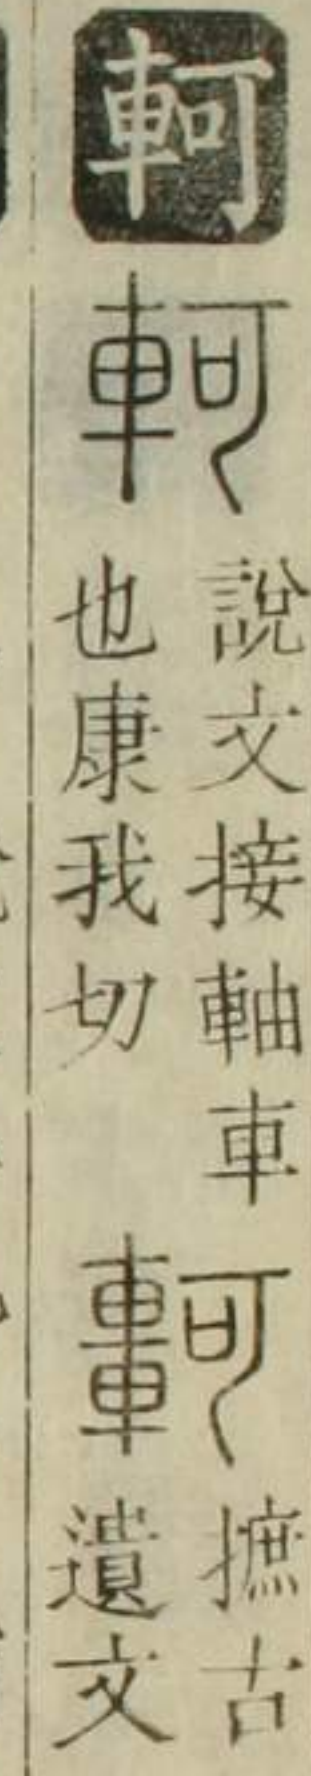 軻
軻
說文接軸車
也康我切
摭古
遺文